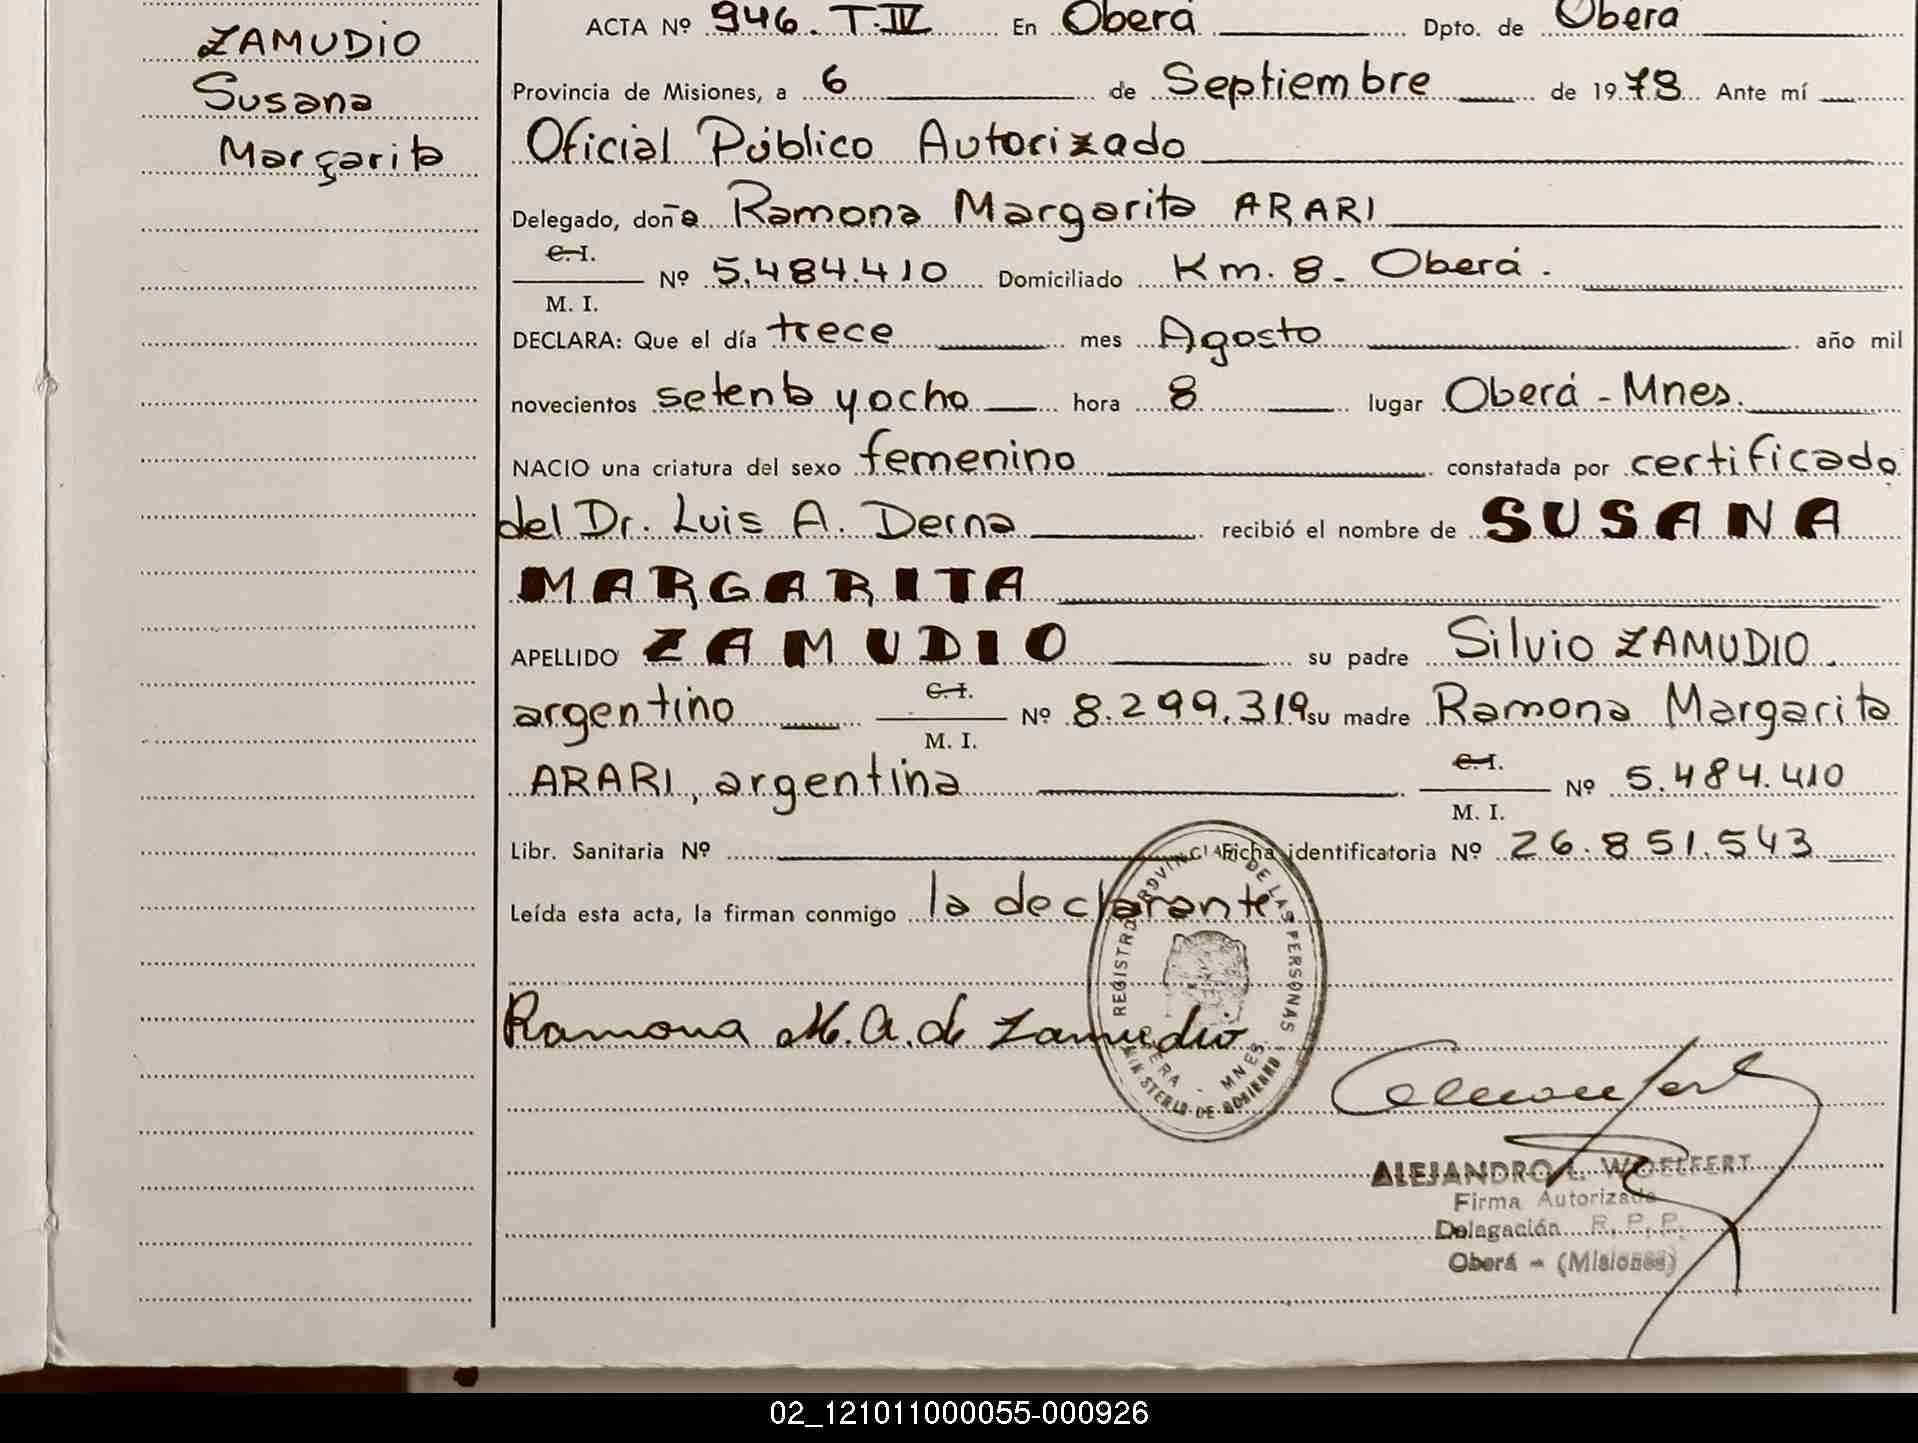 ZAMUDIO
Susana
Margarita
ACTA Nº 946. T.IV En Oberá Dpto. de Oberá
Provincia de Misiones, a 6 de Septiembre de 1978 Ante mí
Oficial Público Autorizado
Delegado, doña Ramona Margarita ARARI
C.I.
M. I. Nº 5.484.410 Domiciliado Km. 8 - Oberá.
DECLARA: Que el día trece mes Agosto año mil
novecientos setenta y ocho hora 8 lugar Oberá - Mnes.
NACIO una criatura del sexo femenino constatada por certificado
del Dr. Luis A. Derna recibió el nombre de SUSANA
MARGARITA
APELLIDO ZAMUDIO su padre Silvio ZAMUDIO.
argentino C.I. M. I. Nº 8.299.319 su madre Ramona Margarita
ARARI, argentina C.I. M. I. Nº 5.484.410
Libr. Sanitaria Nº Ficha identificatoria Nº 26.851.543
Leída esta acta, la firman conmigo la declarante.
REGISTRO PROVINCIAL DE LAS PERSONAS
OBERA - MNES.
MINISTERIO DE GOBIERNO
Ramona M. A. de Zamudio
ALEJANDRO L. WOELFERT
Firma Autorizada
Delegación R. P. P.
Oberá - (Misiones)
02_121011000055-000926